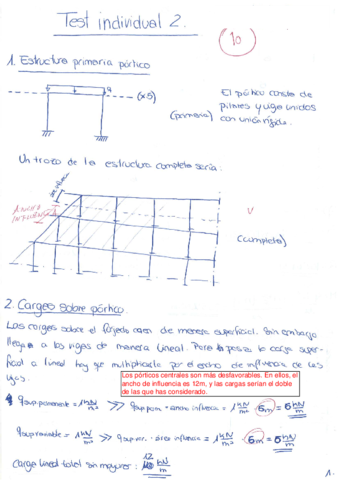 Test individual 2.
10
1. Estructura primaria pórtico
q
(x5)
(primaria)
El pórtico consta de
pilares y viga unidos
con unión rígida.
Un trozo de la estructura completa sería:
ANCHO
INFLUENCIA
(completa)
2. Cargas sobre pórtico.
Las cargas sobre el forjado caen de manera superficial. Sin embargo
llegan a las vigas de manera lineal. Para pasar la carga super-
ficial a lineal hay que multiplicarla por el ancho de influencia de las
vigas.
Los pórticos centrales son más desfavorables. En ellos, el
ancho de influencia es 12m, y las cargas serían el doble
de las que has considerado.
q sup permanente = 1 kN/m² >> q sup perm. · ancho influencia = 1 kN/m² 6m = 6 kN/m
q sup variable = 1 kN/m² >> q sup var. · área influencia = 1 kN/m² 6m = 6 kN/m
Carga lineal total sin mayorar: 12 kN/m
1.